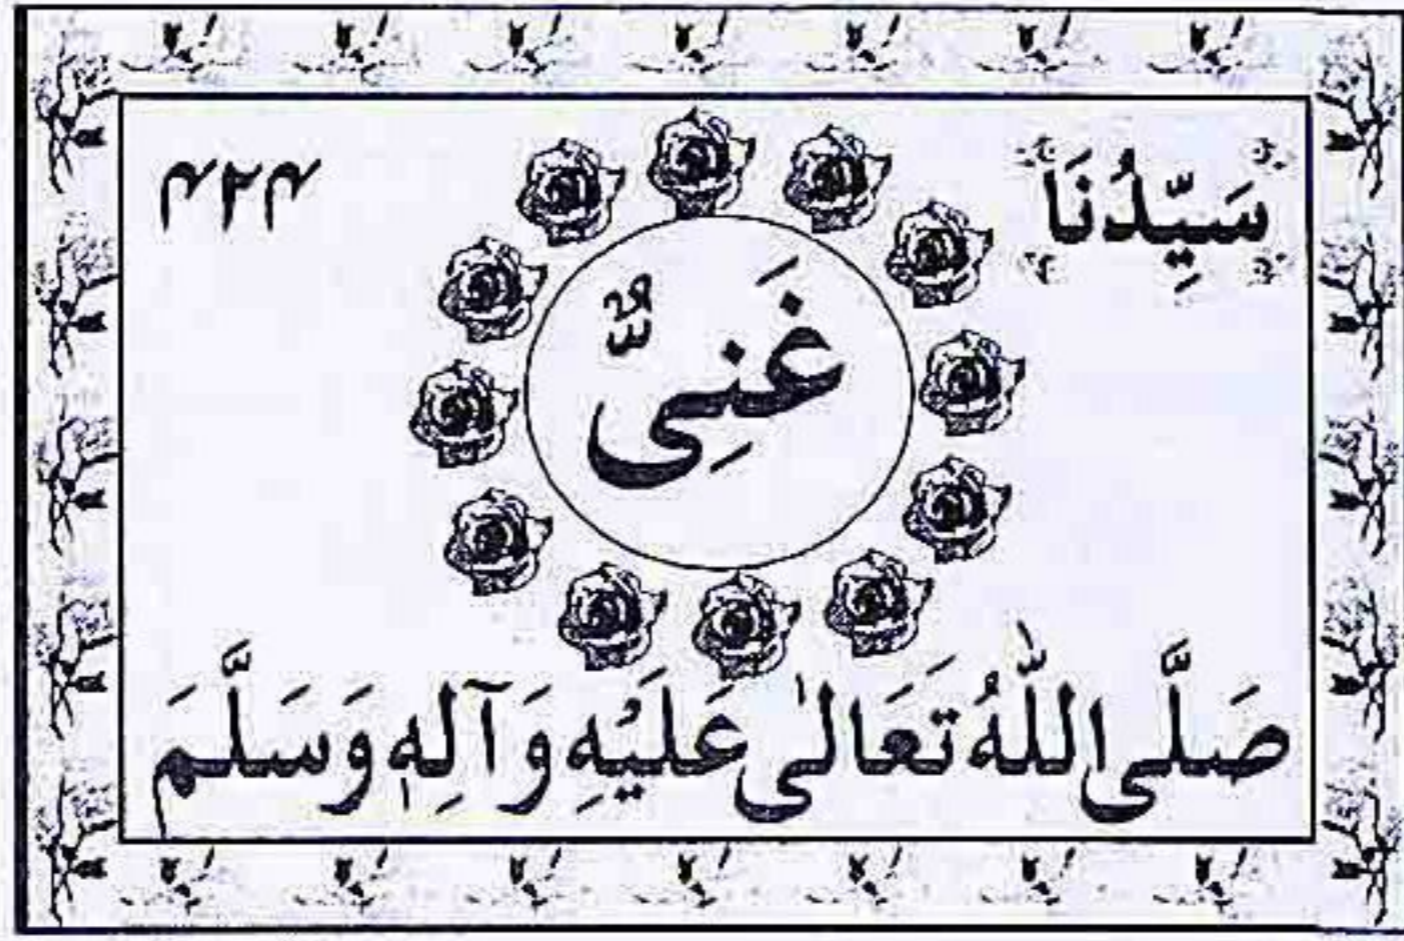 سَيِّدُنَا ۴۲۴
غَنِیٌّ
صَلَّی اللّٰهُ تَعَالٰی عَلَيْهِ وَآلِهٖ وَسَلَّمَ